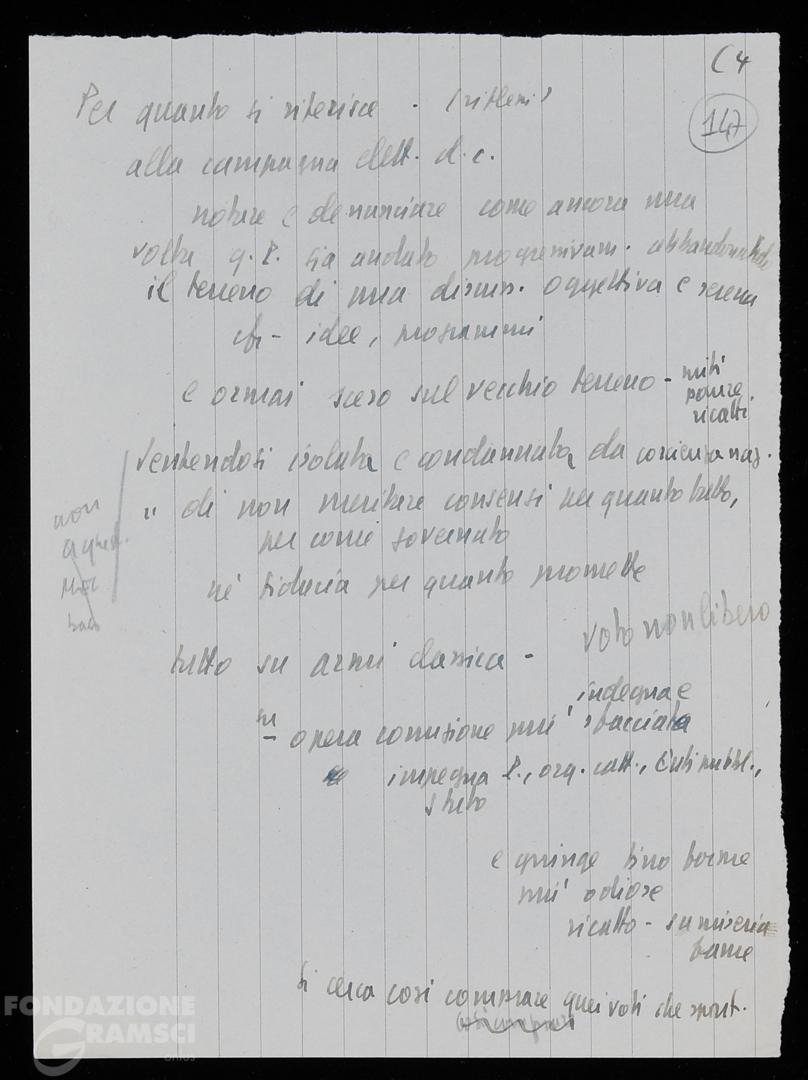 (4
147
Per quanto si riferisce -
alla campagna elett. d.c.
notare e denunciare come ancora una
volta q. P. sia andato progressivam. abbandonando
il terreno di una discuss. oggettiva e serena
idee, programmi
e ormai sceso sul vecchio terreno - miti
paure
ricatti
Sentendosi isolata e condannata da coscienza naz.
" di non meritare consensi per quanto fatto,
non
per come governato
né fiducia per quanto promette
voto non libero
tutto su armi classica -
indegna e
su opera corruzione più sfacciata
impegna P., org. catt., Enti pubbl.,
Stato
e giunge fino forme
più odiose
ricatto - su miseria
fame
Si cerca così comprare quei voti che spont.
FONDAZIONE
GRAMSCI
ONLUS